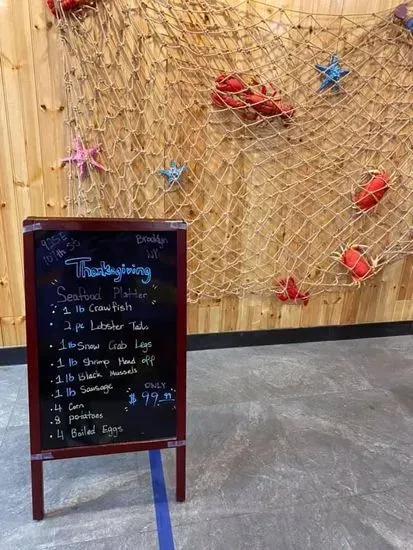 925 E
107th St
Brooklyn
NY
Thanksgiving
Seafood Platter
· 1 lb Crawfish
· 2 pc Lobster Tails
· 1 lb Snow Crab Legs
· 1 lb Shrimp Head off
· 1 lb Black Mussels
· 1 lb Sausage
· 4 Corn
· 8 potatoes
· 4 Boiled Eggs
ONLY
$99.99